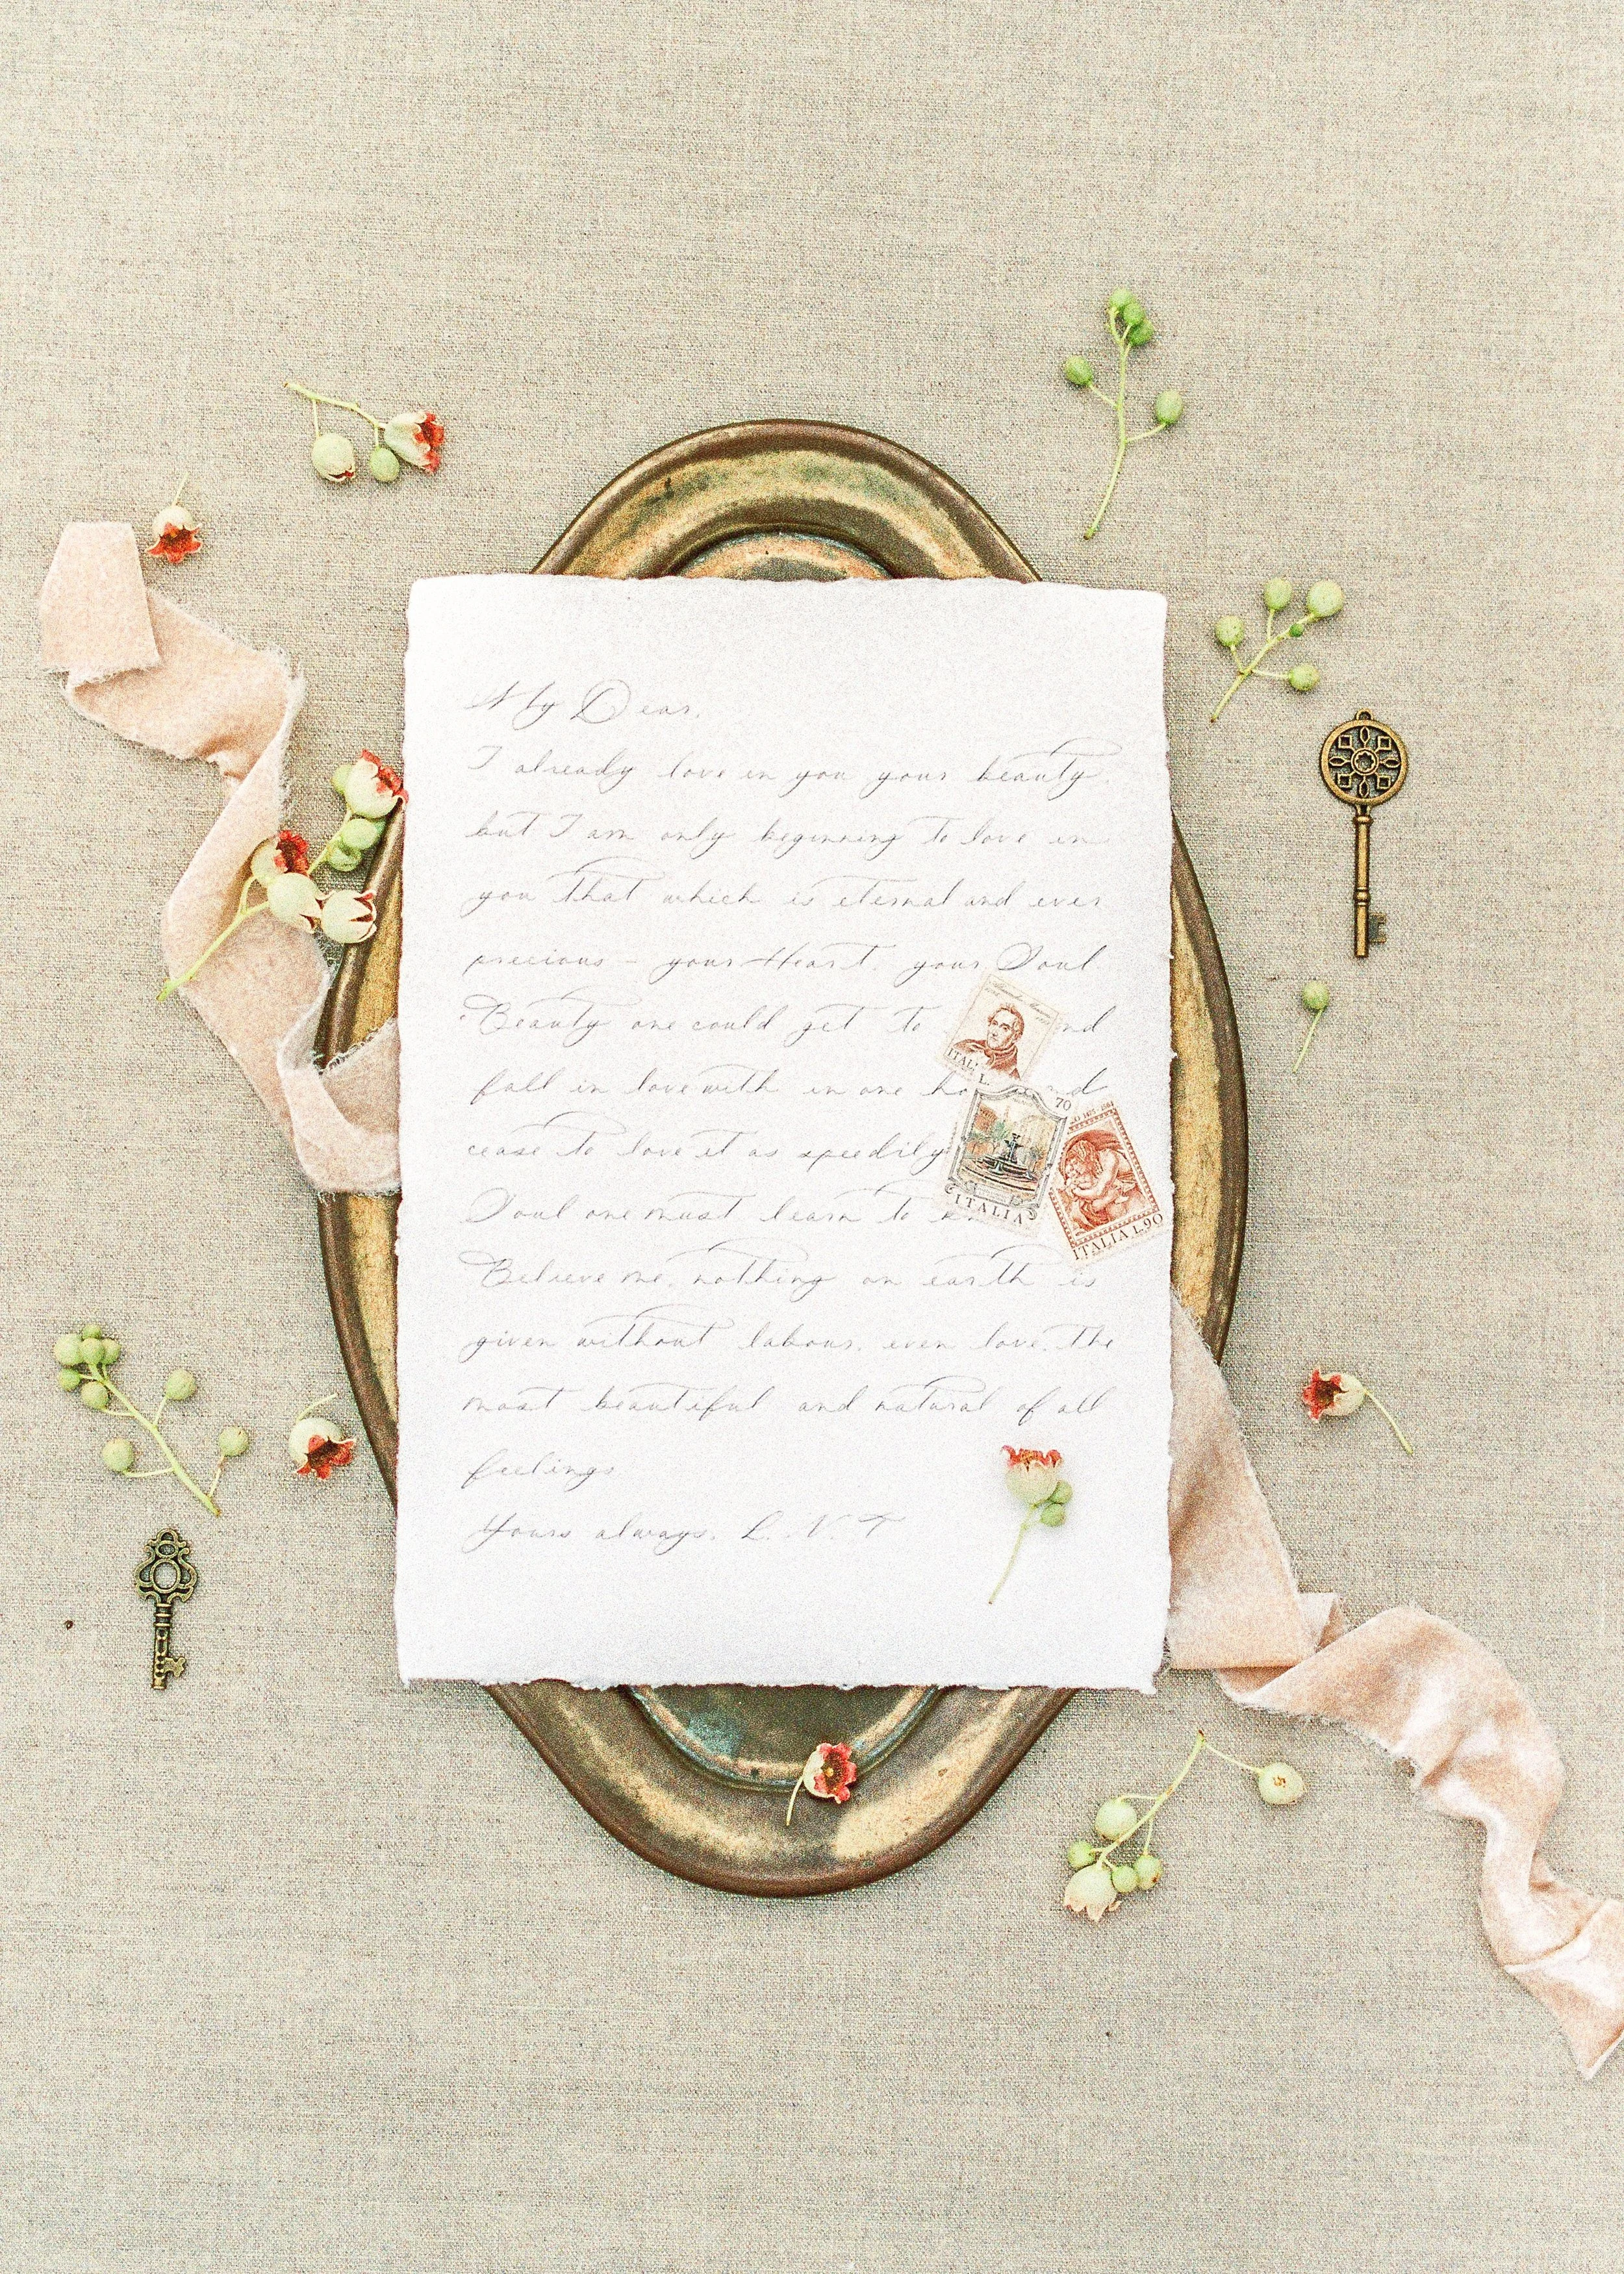 My Dear,
I already love in you your beauty,
but I am only beginning to love in
you that which is eternal and ever
precious – your Heart, your Soul.
Beauty one could get to nd
fall in love with in one ho nd
cease to love it as speedily
Soul one must learn to kn
Believe me, nothing on earth is
given without labour, even love, the
most beautiful and natural of all
feelings
Yours always, L. N. T
ITAL L.
70
ITALIA
ITALIA L.90